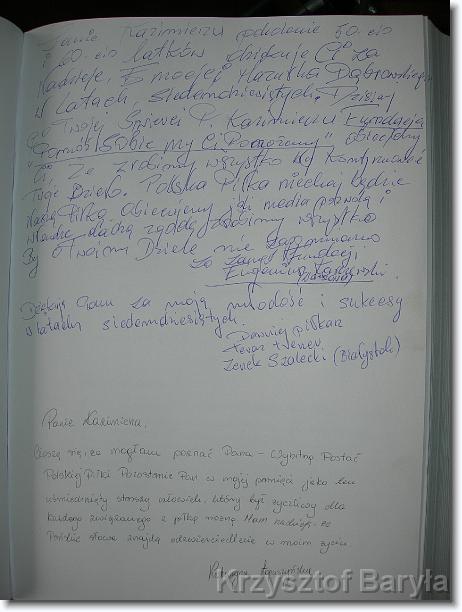 Panie Kazimierzu pokolenie 50-cio
i 60-cio latków dziękuje Ci za
Nadzieję, Emocje i Mazurka Dąbrowskiego
w latach siedemdziesiątych. Dzisiaj
Twojej Śmierci P. Kazimierzu
"Pomóż SOBIE my Ci Pomożemy" obiecujemy
Że zrobimy wszystko by kontynuować
Twoje Dzieło. Polska Piłka niechaj będzie
Naszą Piłką obiecujemy jeśli media pozwolą i
władze dadzą zgodę zrobimy wszystko
By o Twoim Dziele nie zapomniano
Za Zarząd Fundacji
Eugeniusz
Dziękuję Panu za moją młodość i sukcesy
w latach siedemdziesiątych.
Dawniej piłkarz
teraz trener
Zenek Szalecki (Białystok)
Panie Kazimierzu,
Cieszę się, że mogłam poznać Pana - Wybitną Postać
Polskiej Piłki. Pozostanie Pan w mojej pamięci jako ten
uśmiechnięty starszy człowiek, który był życzliwy dla
każdego związanego z piłką nożną. Mam nadzieję, że
Pańskie słowa znajdą odzwierciedlenie w moim życiu.
Katarzyna
Krzysztof Baryła